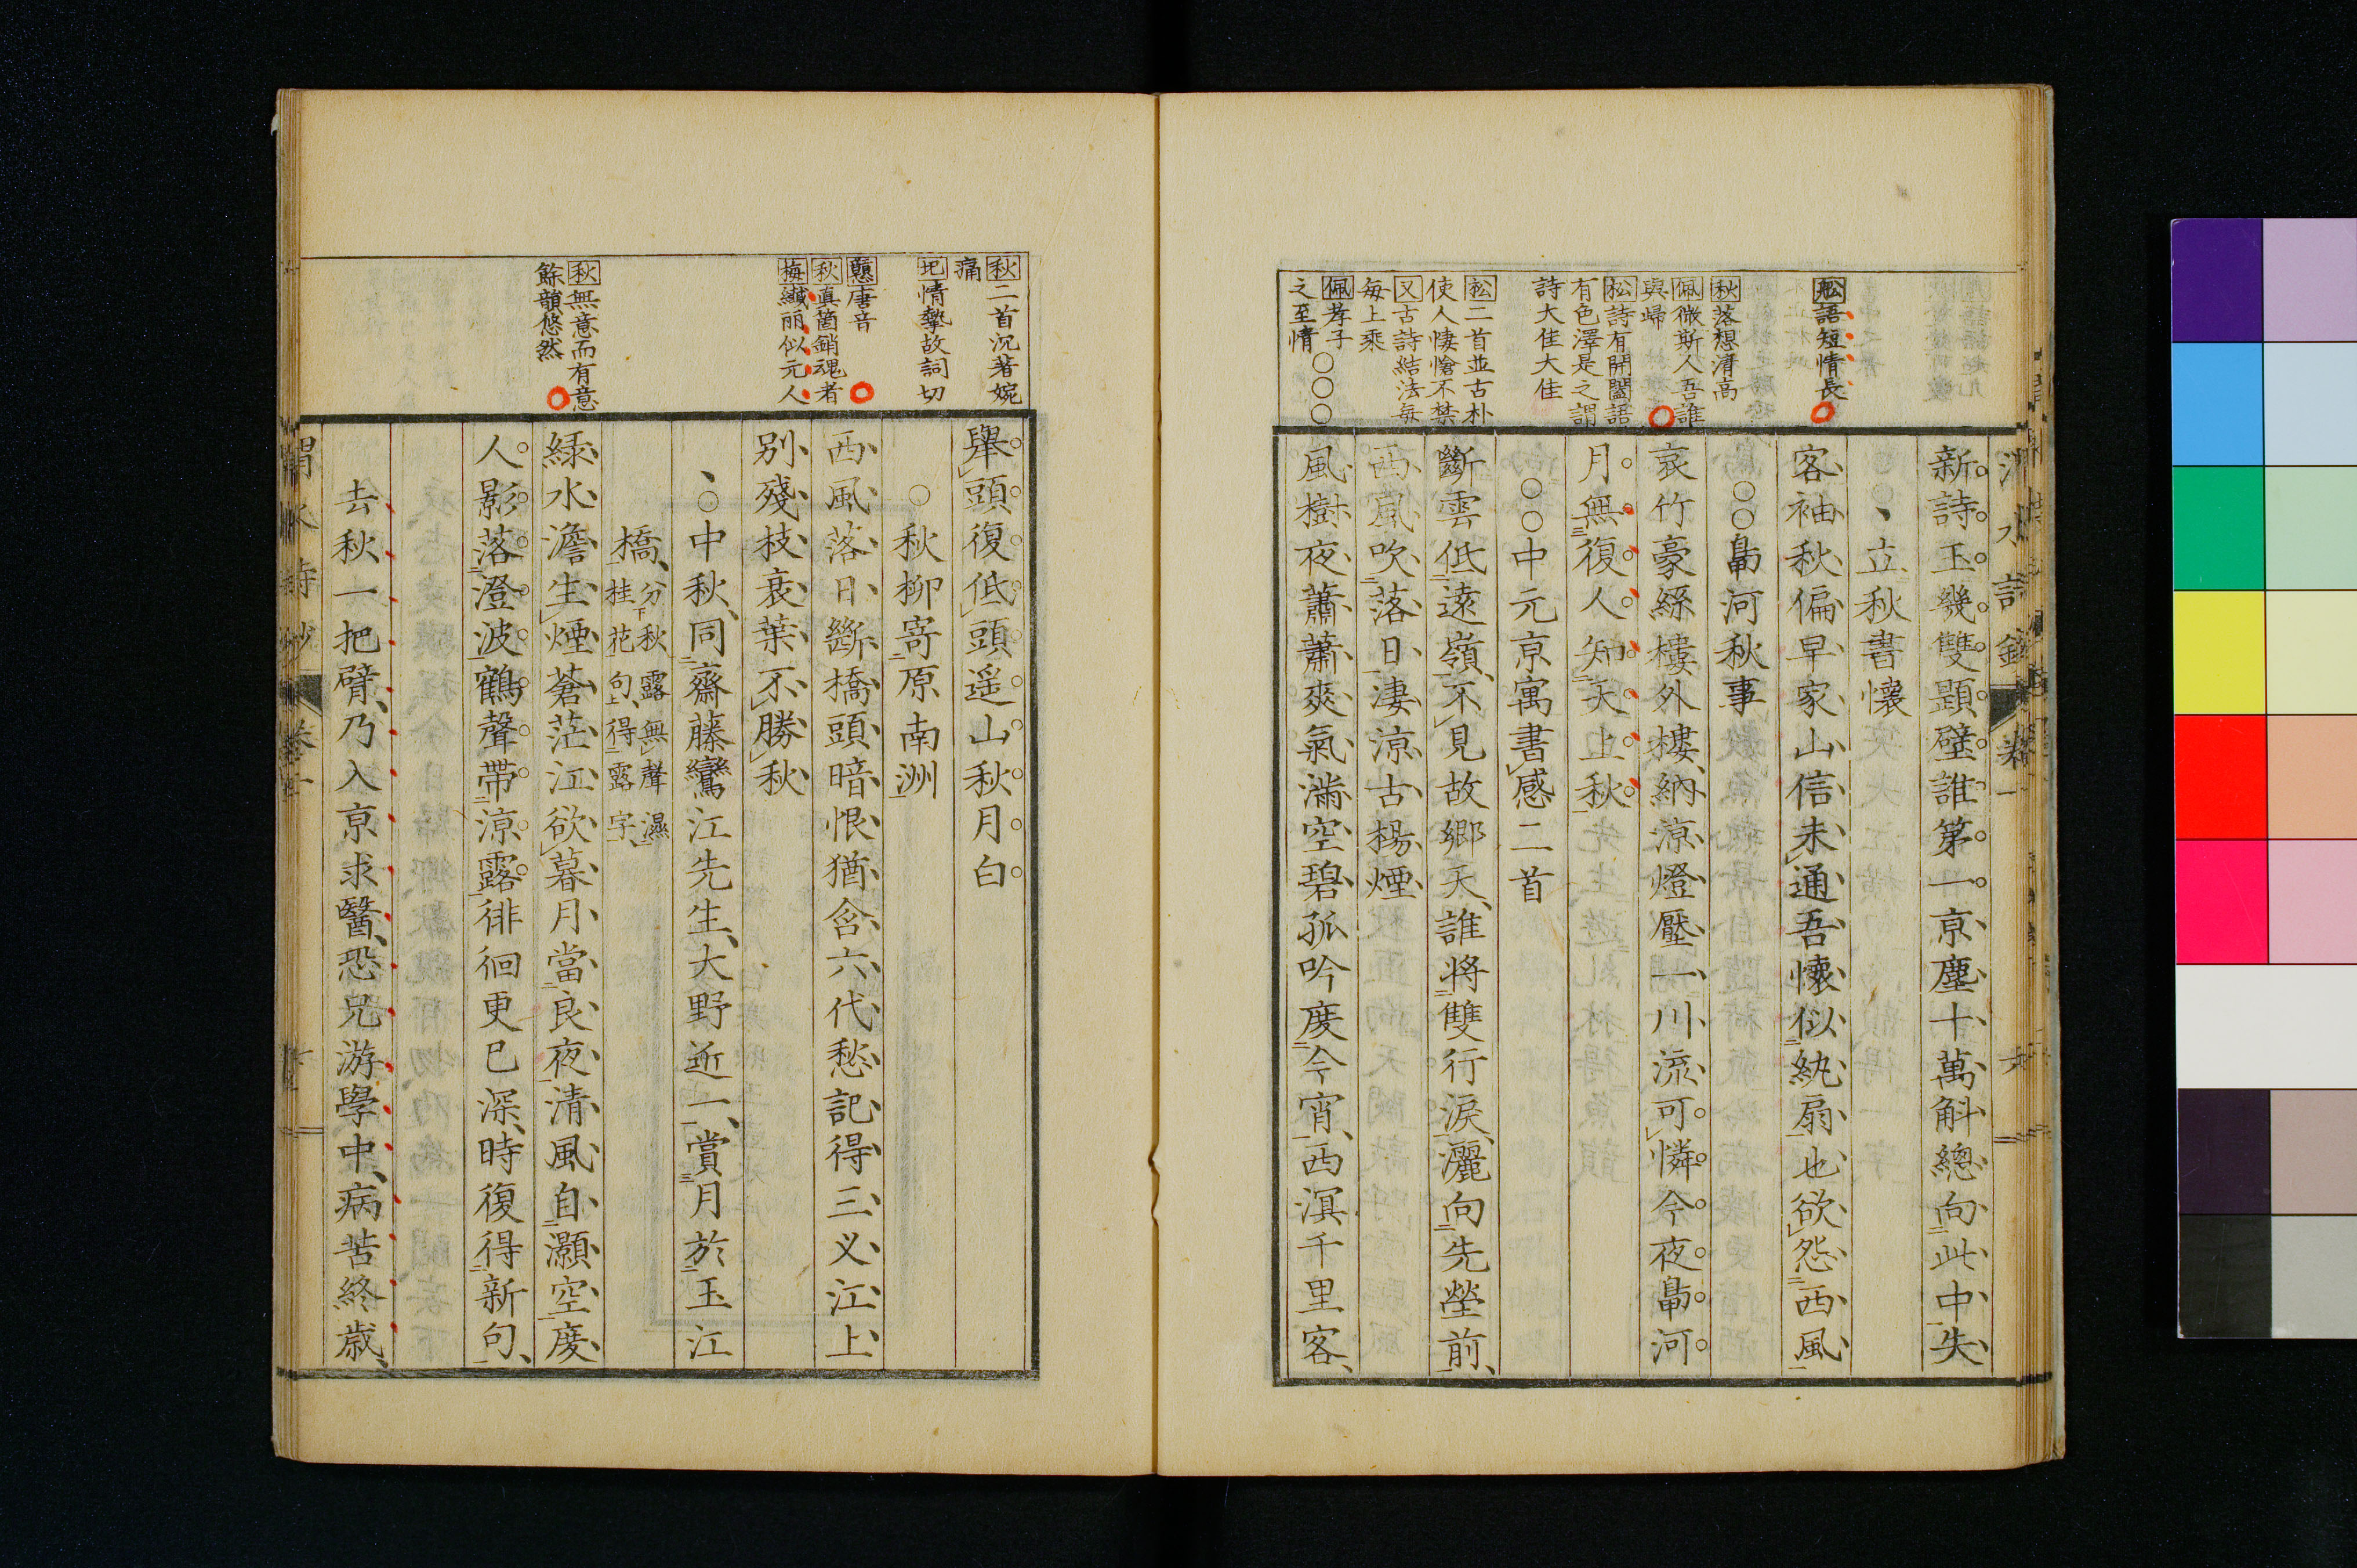 新詩玉幾雙題壁誰第一京塵十萬斛總向此中失
立秋書懷
客袖秋偏早家山信未通吾懷似紈扇也欲怨西風
鼂河秋事
哀竹豪絲樓外樓納涼燈壓一川流可憐今夜鼂河
月無復人知天上秋
中元京寓書感二首
斷雲低遠嶺不見故鄉天誰將雙行淚灑向先塋前
西風吹落日淒涼古楊煙
風樹夜蕭蕭爽氣滿空碧孤吟度今宵西溟千里客
舩語短情長
秋落想清高
佩微斯人吾誰
與歸
松詩有開闔語
有色澤是之謂
詩大佳大佳
松二首並古朴
使人悽愴不禁
又古詩結法每
每上乘
佩孝子
之至情
舉頭復低頭遥山秋月白
秋柳寄原南洲
西風落日斷橋頭暗恨猶含六代愁記得三义江上
别殘枝衰葉不勝秋
中秋同齋藤鸞江先生大野近一賞月於玉江
橋分下秋露無聲濕
桂花句上得露字
綠水澹生煙蒼茫江欲暮月當良夜清風自灝空度
人影落澄波鶴聲帶涼露徘徊更已深時復得新句
去秋一把臂乃入京求醫恐兄游學中病苦終歲
秋二首沉著婉
痛
圯情摯故詞切
龝唐音
秋真箇銷魂者
梅纎丽似元人
秋無意而有意
餘韻悠然